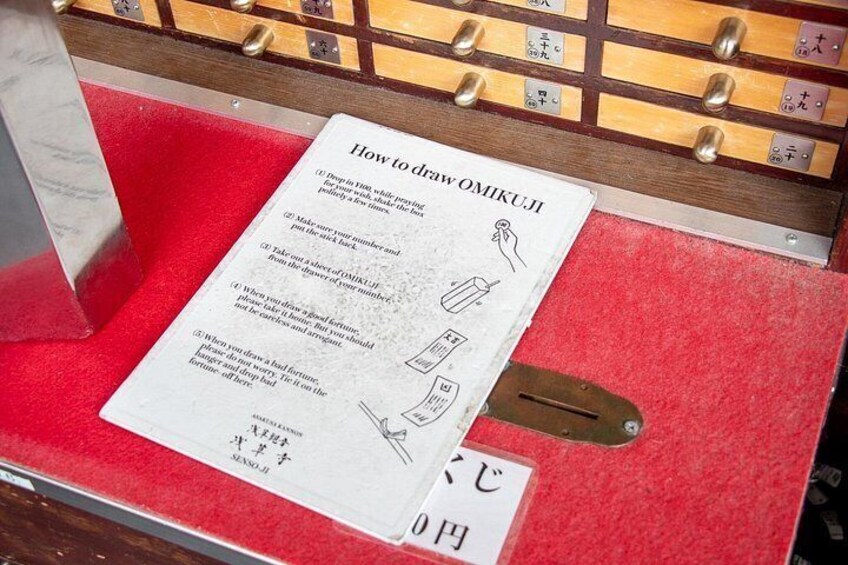 三十九
39
十八
18
六十
四十
40
十九
19
二十
20
How to draw OMIKUJI
(1) Drop in ¥100, while praying
for your wish, shake the box
politely a few times.
(2) Make sure your number and
put the stick back.
(3) Take out a sheet of OMIKUJI
from the drawer of your number.
(4) When you draw a good fortune,
please take it home. But you should
not be careless and arrogant.
(5) When you draw a bad fortune,
please do not worry. Tie it on the
hanger and drop bad
fortune- off here.
大吉
凶
ASAKUSA KANNON
浅草観音
浅草寺
SENSO-JI
くじ
0円